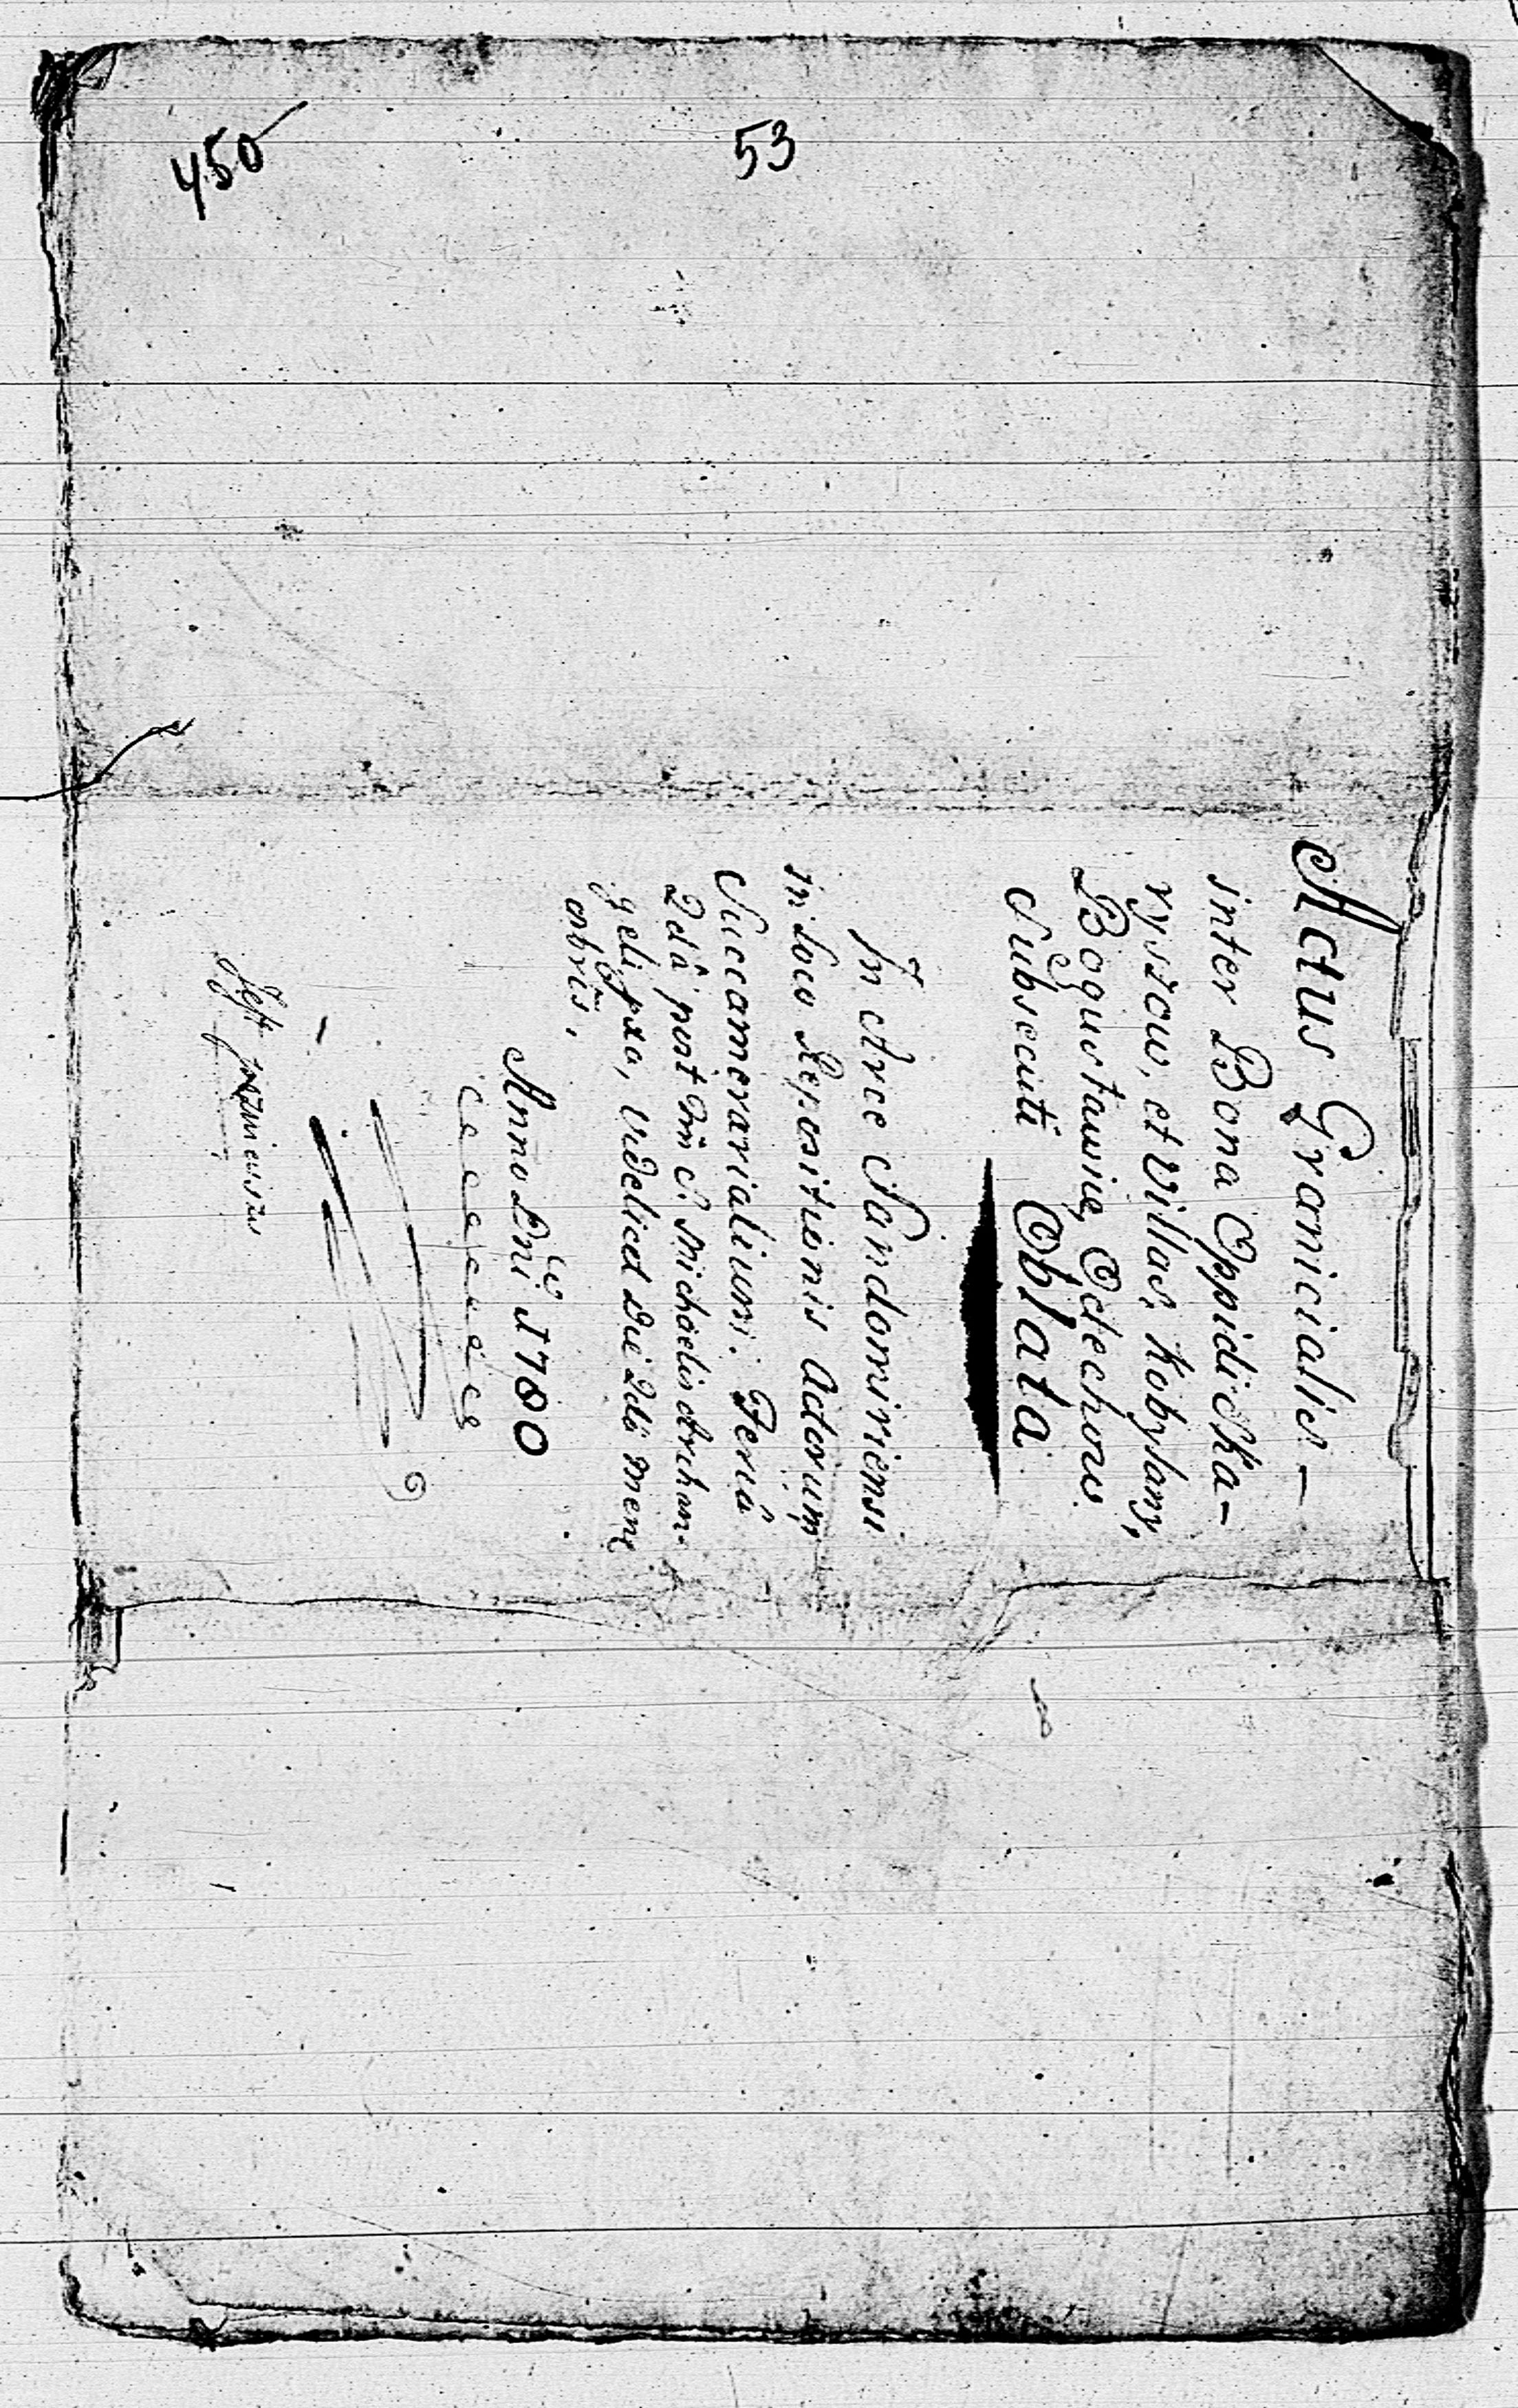 450
53
Actus Graniciales —
inter Bona Oppidi Ska-
ryszow, et Villas, Kobylany,
Bogusławice, Odechow
Subsecuti Oblata
In Arce Sandomiriensi
in Loco Repositionis Actorum
Succamerarialium. Feriâ
2dâ post Fm S. Michaelis Archan-
geli pxa, videlicet Die 2da Mens
obris,
Anno Dni 1780
Jest